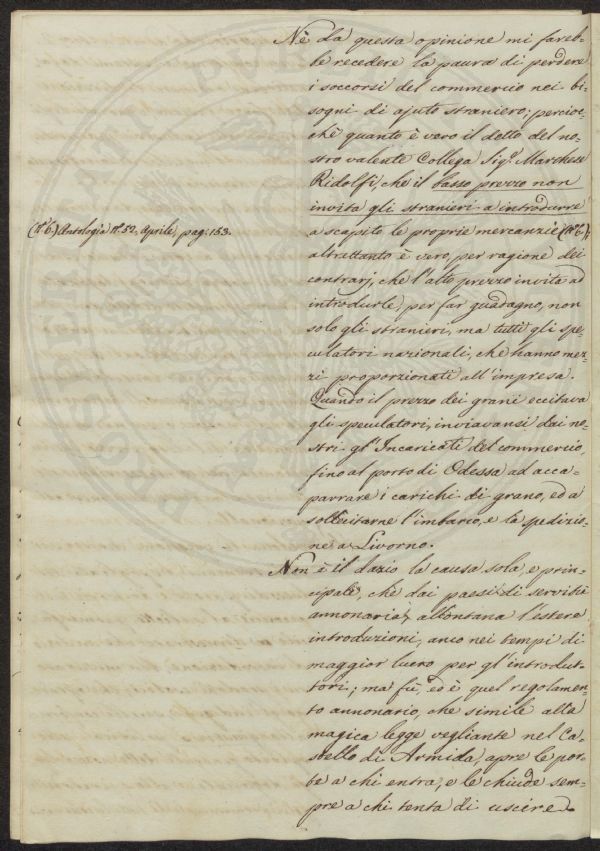 Nè da questa opinione mi fareb-
be recedere la paura di perdere
i soccorsi del commercio nei bi-
sogni di ajuto straniero; percioc-
chè quanto è vero il detto del no-
stro valente Collega Sigr. Marchese
Ridolfi, che il basso prezzo non
invita gli stranieri a introdurre
a scapito le proprie mercanzie (N.° 6.),
(N.° 6.) Antologia N.° 52, Aprile, pag: 153.
altrettanto è vero, per ragione dei
contrarj, che l'alto prezzo invita ad
introdurle, per far guadagno, non
solo gli stranieri, ma tutti gli spe-
culatori nazionali, che hanno mez-
zi proporzionati all'impresa.
Quando il prezzo dei grani eccitava
gli speculatori, inviavansi dai no-
stri gl'Incaricati del commercio
fino al porto di Odessa ad acca-
parrare i carichi di grano, ed a
sollecitarne l'imbarco, e la spedizio-
ne a Livorno.
Non è il dazio la causa sola, e prin-
cipale, che dai paesi di servitù
annonaria, allontana l'estere
introduzioni, anco nei tempi di
maggior lucro per gl'introdut-
tori; ma fù, ed è quel regolamen-
to annonario, che simile alla
magica legge vegliante nel Ca-
stello di Armida, apre le por-
te a chi entra, e le chiude sem-
pre a chi tenta di uscire.
PROSPERITATI PUBLICAE